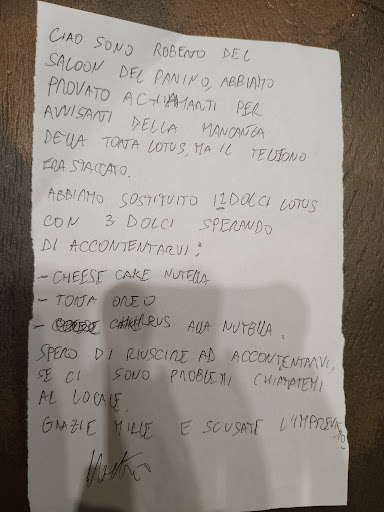 CIAO SONO ROBERTO DEL
SALOON DEL PANINO, ABBIAMO
PROVATO A CHIAMARTI PER
AVVISARTI DELLA MANCANZA
DELLA TORTA LOTUS, MA IL TELEFONO
ERA STACCATO.
ABBIAMO SOSTITUITO I 2 DOLCI LOTUS
CON 3 DOLCI SPERANDO
DI ACCONTENTARVI:
- CHEESE CAKE NUTELLA
- TORTA OREO
- CHURUS ALLA NUTELLA.
SPERO DI RIUSCIRE AD ACCONTENTARVI,
SE CI SONO PROBLEMI CHIAMATEMI
AL LOCALE.
GRAZIE MILLE E SCUSATE L'IMPREVISTO.